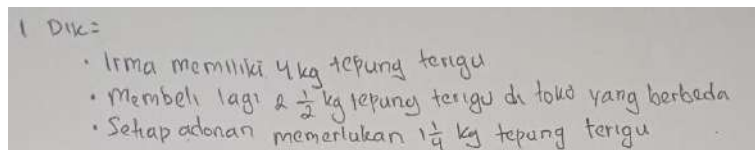 1 Dik =
• Irma memiliki 4 kg tepung terigu
• Membeli lagi 2 1/2 kg tepung terigu di toko yang berbeda
• Setiap adonan memerlukan 1 1/4 kg tepung terigu